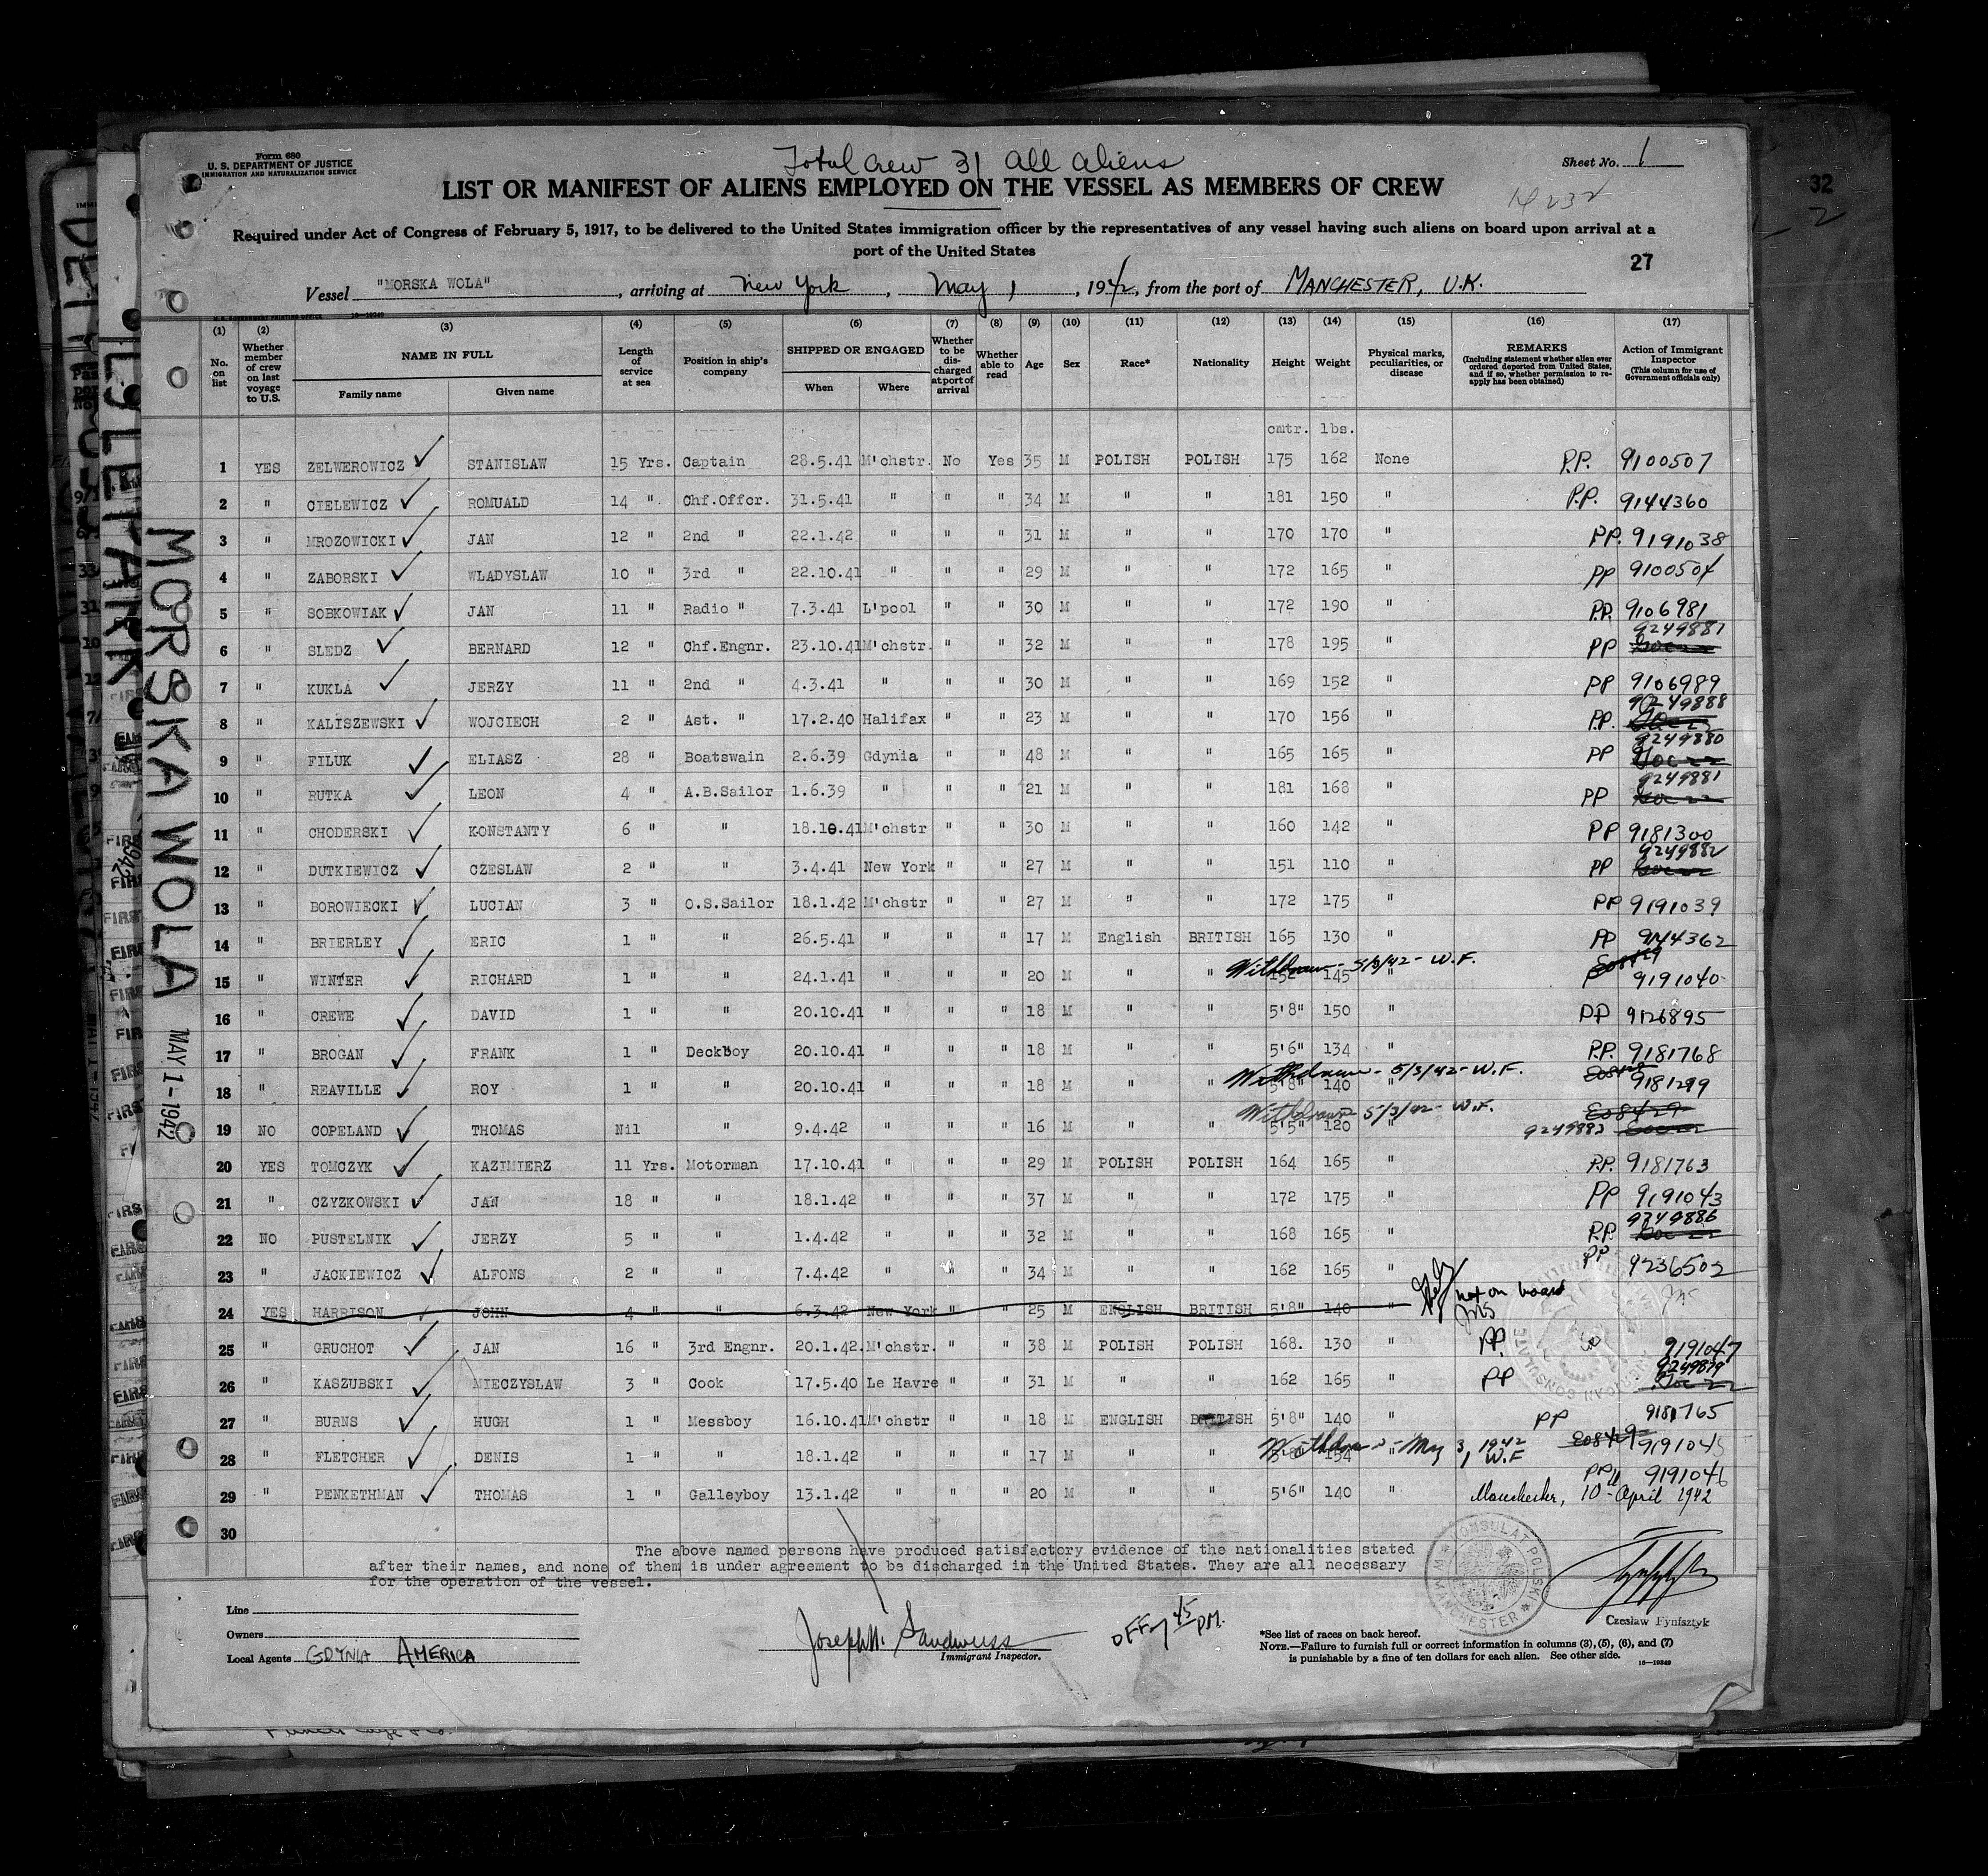 Form 680
U. S. DEPARTMENT OF JUSTICE
IMMIGRATION AND NATURALIZATION SERVICE
Total Crew 31 all aliens
Sheet No. 1
LIST OR MANIFEST OF ALIENS EMPLOYED ON THE VESSEL AS MEMBERS OF CREW
32
2
Required under Act of Congress of February 5, 1917, to be delivered to the United States immigration officer by the representatives of any vessel having such aliens on board upon arrival at a
port of the United States
27
Vessel "MORSKA WOLA", arriving at New York, May 1, 1942, from the port of MANCHESTER, U.K.
(1) (2) (3) (4) (5) (6) (7) (8) (9) (10) (11) (12) (13) (14) (15) (16) (17)
No. on list
Whether member of crew on last voyage to U.S.
NAME IN FULL
Family name
Given name
Length of service at sea
Position in ship's company
SHIPPED OR ENGAGED
When
Where
Whether to be discharged at port of arrival
Whether able to read
Age
Sex
Race*
Nationality
Height
Weight
Physical marks, peculiarities, or disease
REMARKS
(Including statement whether alien ever ordered deported from United States, and if so, whether permission to reapply has been obtained)
Action of Immigrant Inspector
(This column for use of Government officials only)
cmtr. lbs.
1 YES ZELWEROWICZ STANISLAW 15 Yrs. Captain 28.5.41 M'chstr. No Yes 35 M POLISH POLISH 175 162 None P.P. 9100507
2 " CIELEWICZ ROMUALD 14 " Chf.Offcr. 31.5.41 " " " 34 M " " 181 150 " P.P. 9144360
3 " MROZOWICKI JAN 12 " 2nd " 22.1.42 " " " 31 M " " 170 170 " PP. 9191038
4 " ZABORSKI WLADYSLAW 10 " 3rd " 22.10.41 " " " 29 M " " 172 165 " PP 9100504
5 " SOBKOWIAK JAN 11 " Radio " 7.3.41 L'pool " " 30 M " " 172 190 " P.P. 9106981
6 " SLEDZ BERNARD 12 " Chf.Engnr. 23.10.41 M'chstr. " " 32 M " " 178 195 " PP 9249887
7 " KUKLA JERZY 11 " 2nd " 4.3.41 " " " 30 M " " 169 152 " PP 9106989
8 " KALISZEWSKI WOJCIECH 2 " Ast. " 17.2.40 Halifax " " 23 M " " 170 156 " P.P. 9249888
9 " FILUK ELIASZ 28 " Boatswain 2.6.39 Gdynia " " 48 M " " 165 165 " PP 9249880
10 " RUTKA LEON 4 " A.B.Sailor 1.6.39 " " " 21 M " " 181 168 " PP 9249881
11 " CHODERSKI KONSTANTY 6 " " 18.10.41 M'chstr " " 30 M " " 160 142 " PP 9181300
12 " DUTKIEWICZ CZESLAW 2 " " 3.4.41 New York " " 27 M " " 151 110 " PP 9249882
13 " BOROWIECKI LUCIAN 3 " O.S.Sailor 18.1.42 M'chstr " " 27 M " " 172 175 " PP 9191039
14 " BRIERLEY ERIC 1 " " 26.5.41 " " " 17 M English BRITISH 165 130 " PP 9144362
15 " WINTER RICHARD 1 " " 24.1.41 " " " 20 M " " 152 145 " Withdrawn - 5/3/42 - W.F. 9191040
16 " CREWE DAVID 1 " " 20.10.41 " " " 18 M " " 5'8" 150 " PP 9126895
17 " BROGAN FRANK 1 " Deckboy 20.10.41 " " " 18 M " " 5'6" 134 " P.P. 9181768
18 " REAVILLE ROY 1 " " 20.10.41 " " " 18 M " " 5'8" 140 " Withdrawn - 5/3/42 - W.F. 9181299
19 NO COPELAND THOMAS Nil " 9.4.42 " " " 16 M " " 5'5" 120 " Withdrawn 5/3/42 - W.F. E08429 9249883
20 YES TOMCZYK KAZIMIERZ 11 Yrs. Motorman 17.10.41 " " " 29 M POLISH POLISH 164 165 " P.P. 9181763
21 " CZYZKOWSKI JAN 18 " " 18.1.42 " " " 37 M " " 172 175 " PP 9191043
22 NO PUSTELNIK JERZY 5 " " 1.4.42 " " " 32 M " " 168 165 " P.P. 9249886
23 " JACKIEWICZ ALFONS 2 " " 7.4.42 " " " 34 M " " 162 165 " PP 9236502
24 YES HARRISON JOHN 4 " " 6.3.42 New York " " 25 M ENGLISH BRITISH 5'8" 140 " not on board
25 " GRUCHOT JAN 16 " 3rd Engnr. 20.1.42. M'chstr. " " 38 M POLISH POLISH 168. 130 " PP. 9191047
26 " KASZUBSKI MIECZYSLAW 3 " Cook 17.5.40 Le Havre " " 31 M " " 162 165 " PP 9249879
27 " BURNS HUGH 1 " Messboy 16.10.41 M'chstr " " 18 M ENGLISH BRITISH 5'8" 140 " PP 9181765
28 " FLETCHER DENIS 1 " " 18.1.42 " " " 17 M " " 5'8" 154 " Withdrawn - May 3, 1942 W.F E08429 9191045
29 " PENKETHMAN THOMAS 1 " Galleyboy 13.1.42 " " " 20 M " " 5'6" 140 " PP 9191046
Manchester, 10 - April 1942
30
The above named persons have produced satisfactory evidence of the nationalities stated
after their names, and none of them is under agreement to be discharged in the United States. They are all necessary
for the operation of the vessel.
KONSULAT POLSKI W MANCHESTER
Czesław Fynisztyk
Line
Owners
Local Agents GDYNIA AMERICA
Immigrant Inspector.
OFF 7 45 PM.
*See list of races on back hereof.
NOTE.—Failure to furnish full or correct information in columns (3), (5), (6), and (7)
is punishable by a fine of ten dollars for each alien. See other side.
16—19349
MORSKA WOLA MAY 1 - 1942